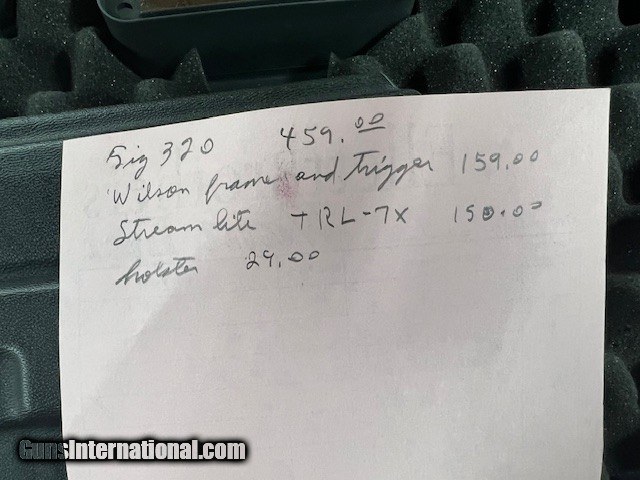 Sig 320 459.00
Wilson frame and trigger 159.00
Stream lite TRL-7X 150.00
holster 29.00
GunsInternational.com